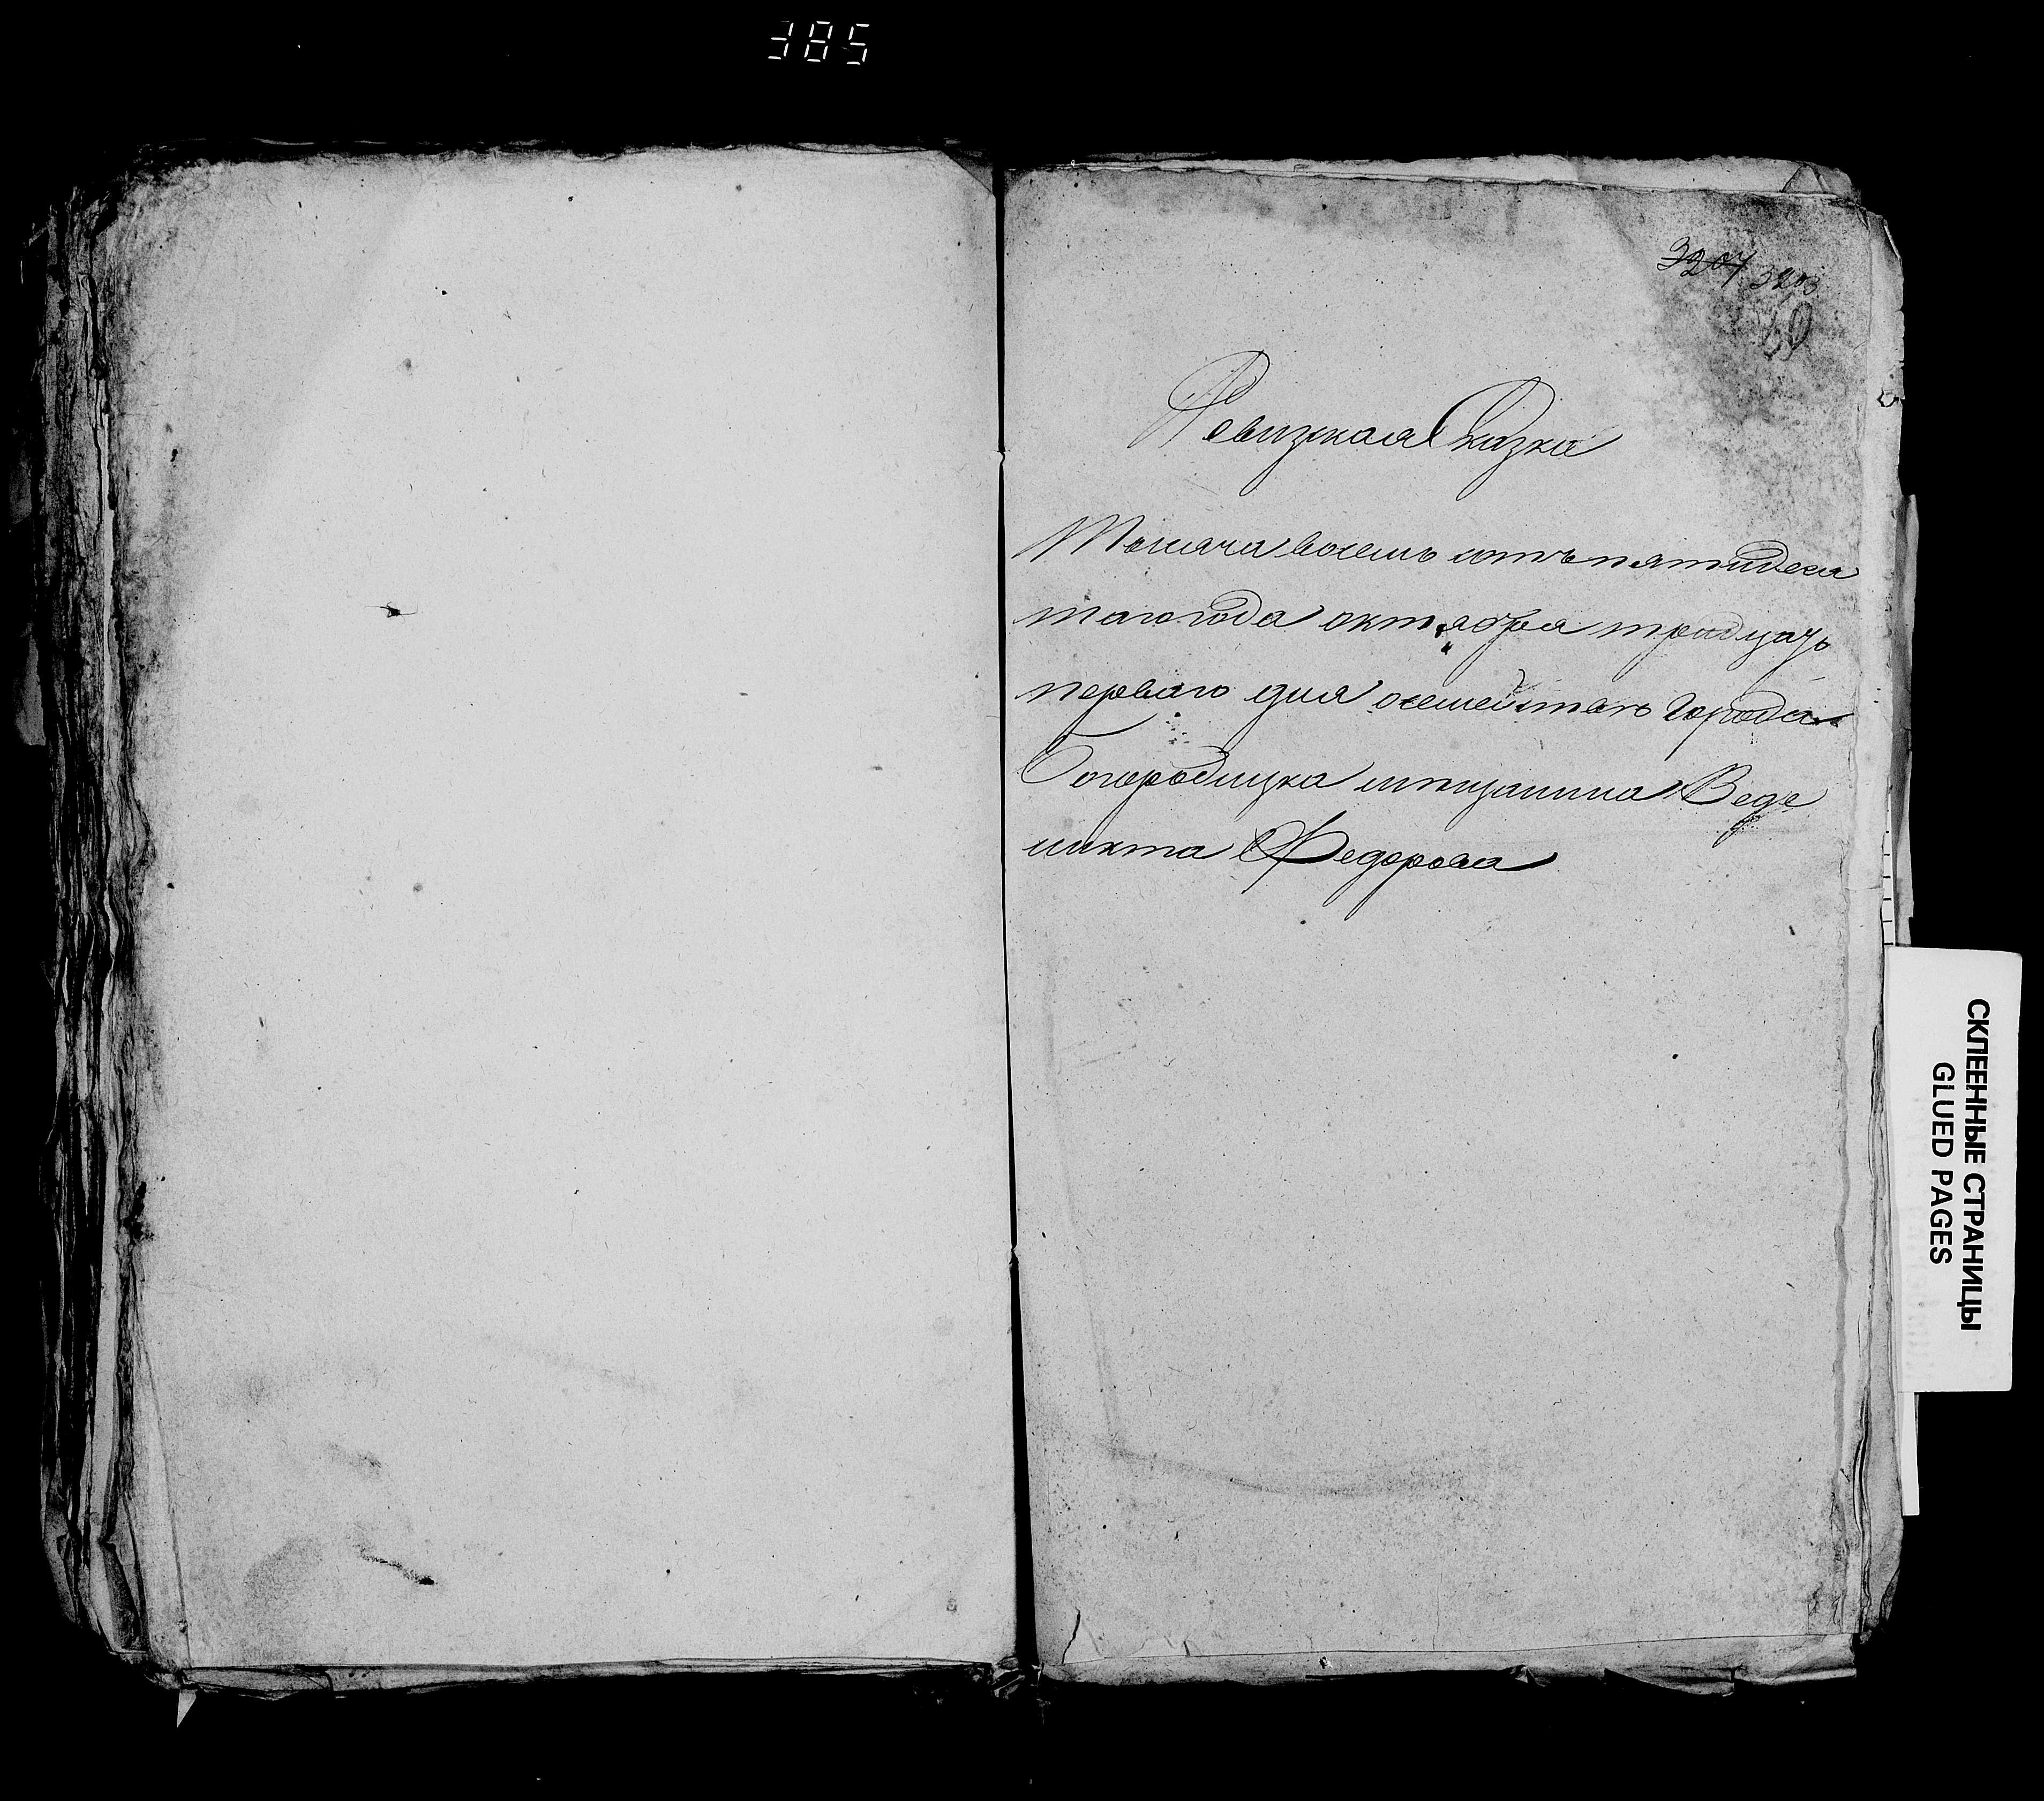 385
3207 3203
69
Ревизская Сказка
Тысяча восемь сотъ пятидеся
таго года октября тридцать
перваго дня осемействе Города
Богородицка мещанина Веде
никта Федорова
СКЛЕЕННЫЕ СТРАНИЦЫ
GLUED PAGES